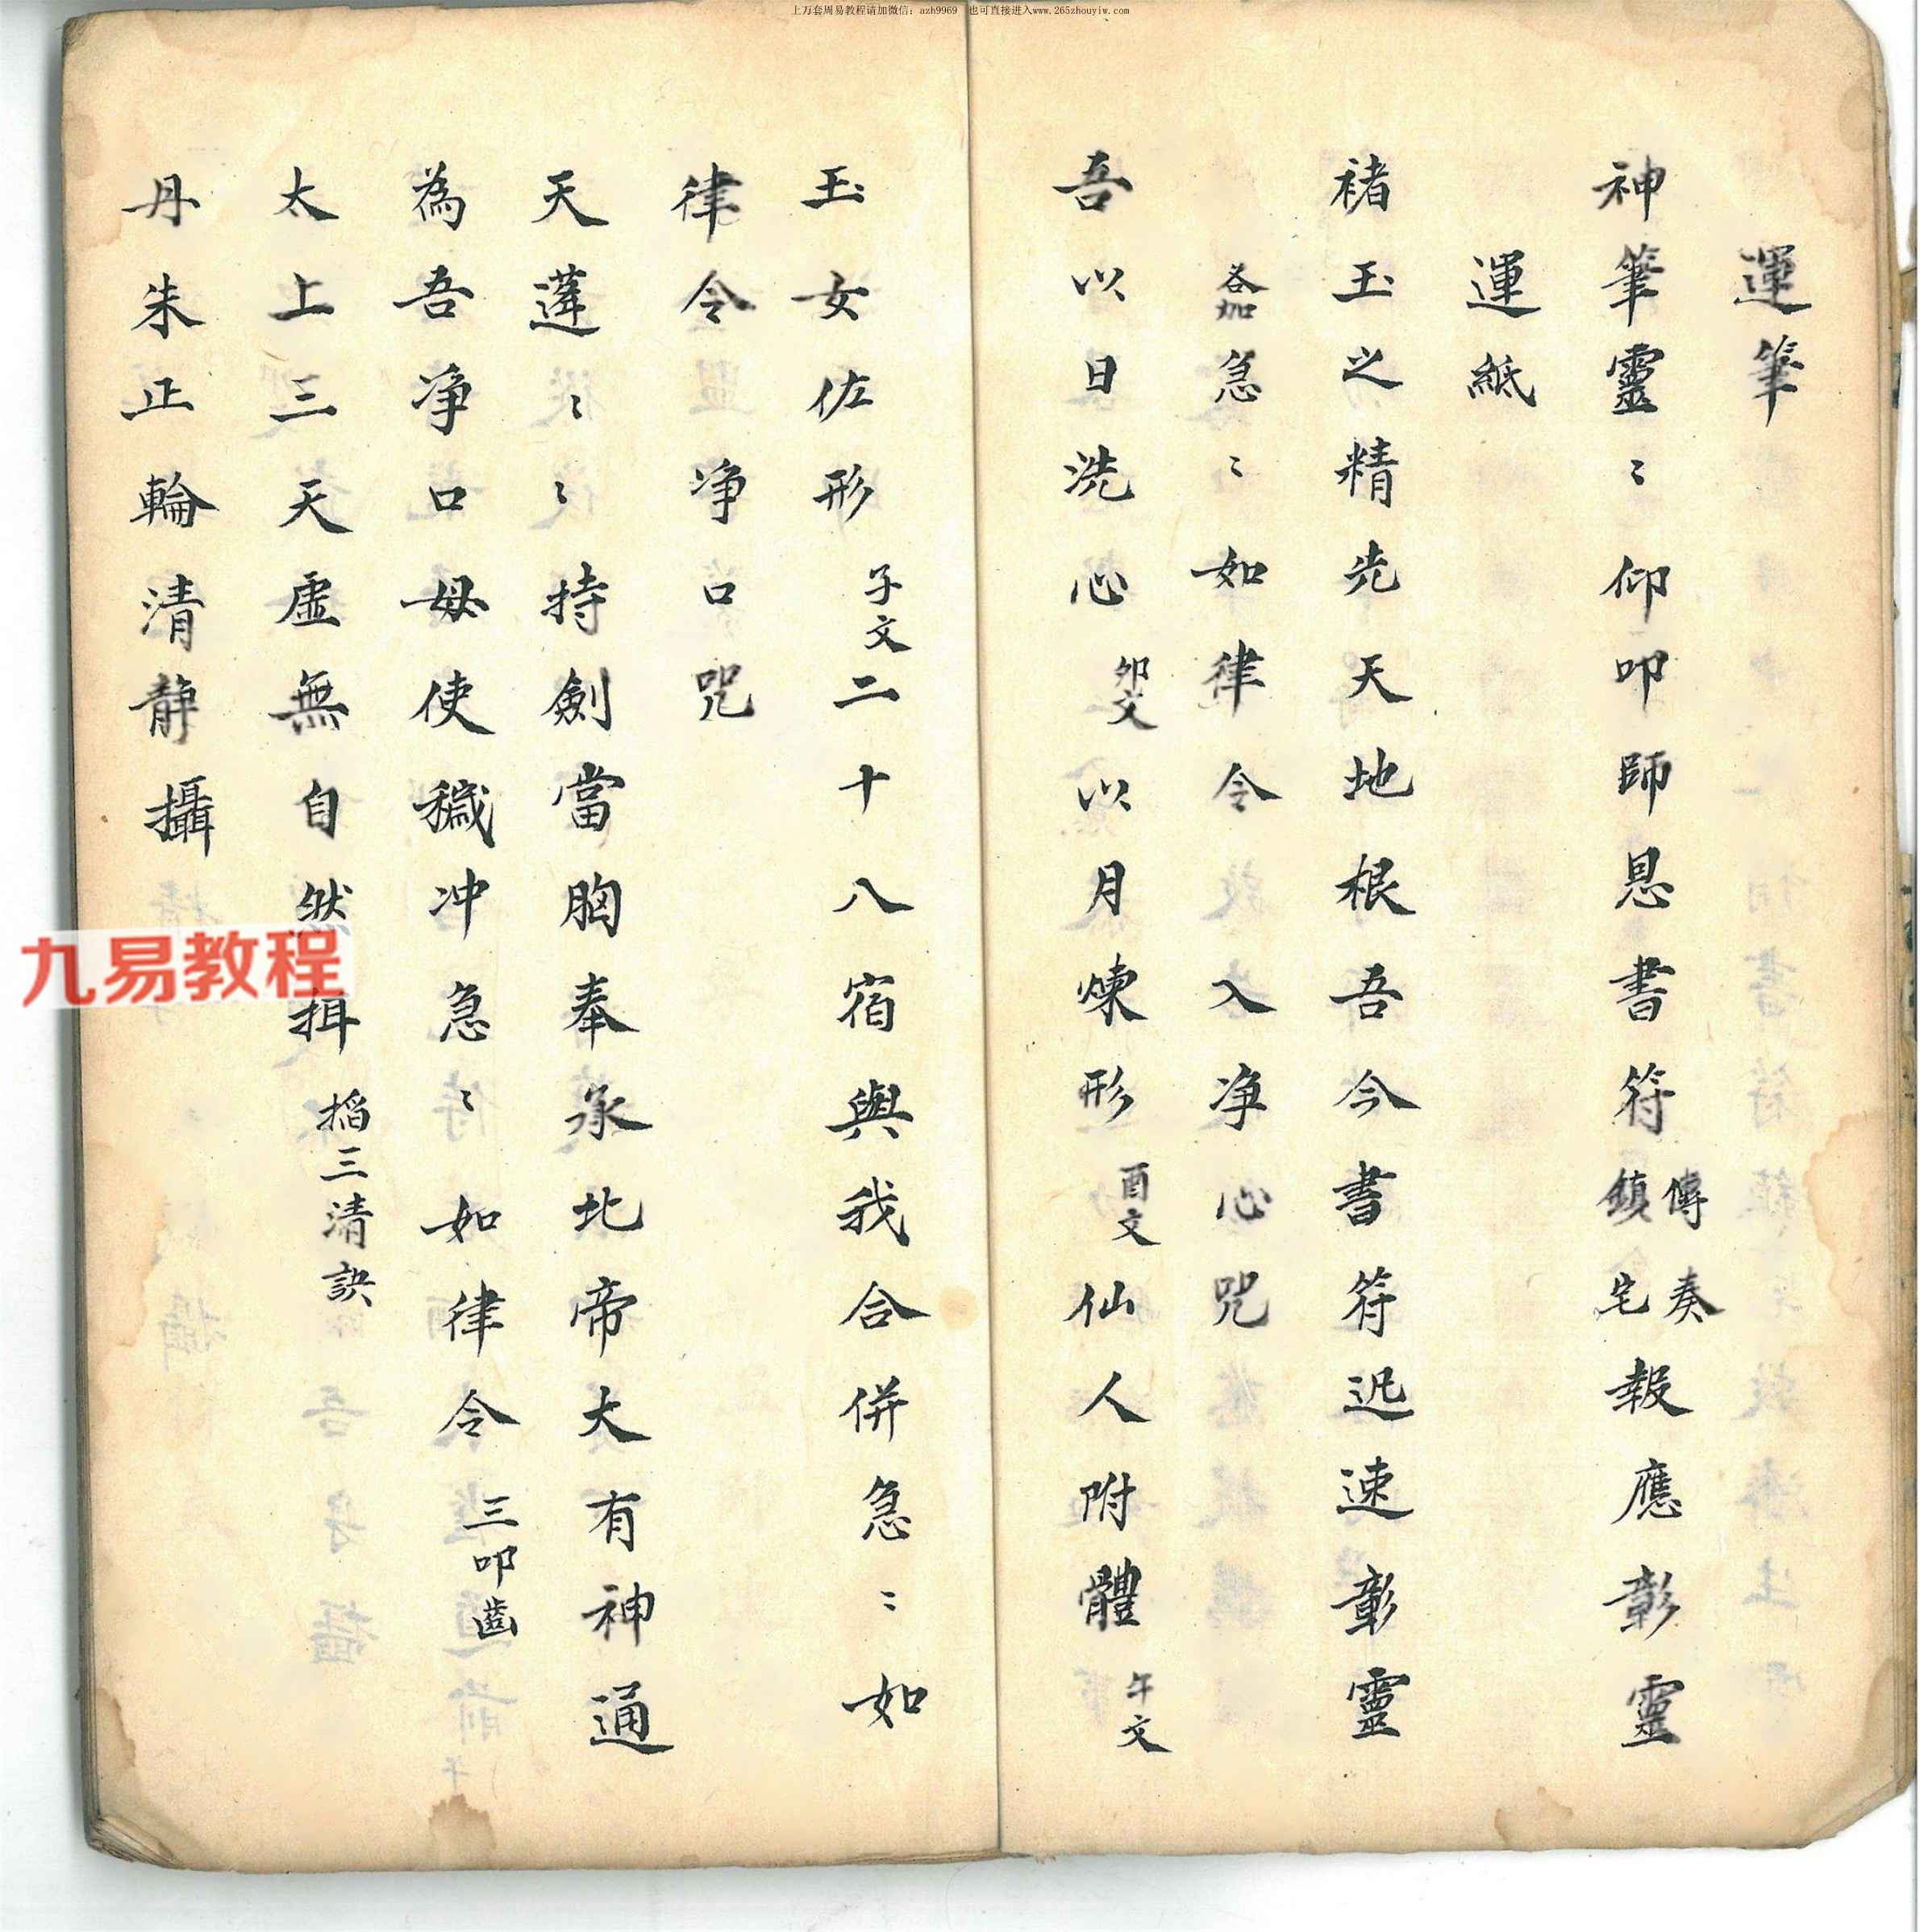 上万套周易教程请加微信：azh9969 也可直接进入www.265zhouyiw.com
運筆
神筆靈〻仰叩師恩書符傳奏鎮宅報應彰靈
運紙
褚玉之精先天地根吾今書符迅速彰靈
各加急〻如律令 入净心咒
吾以日洗心卯文以月煉形酉文仙人附體午文
玉女佐形子文二十八宿與我合併急〻如
律令 净口咒
天蓬〻〻持劍當胸奉承北帝大有神通
為吾净口毋使穢冲急〻如律令三叩齒
太上三天虛無自然揖掐三清訣
丹朱正輪清靜攝
九易教程